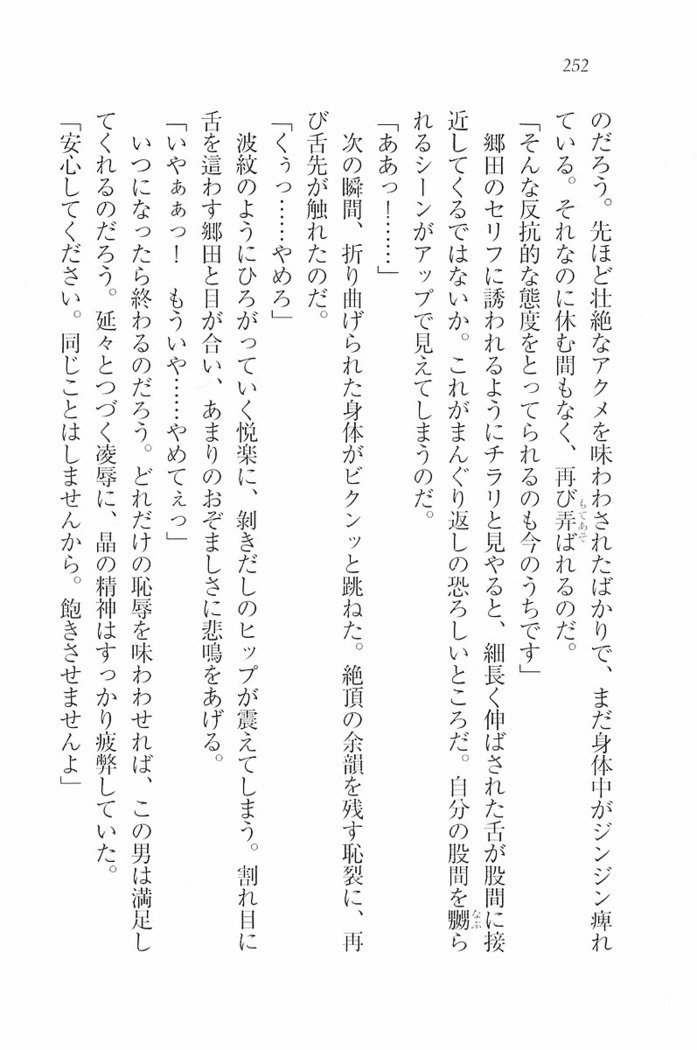 252
のだろう。先ほど壮絶なアクメを味わわされたばかりで、まだ身体中がジンジン痺れ
ている。それなのに休む間もなく、再び弄ばれるのだ。
もてあそ
「そんな反抗的な態度をとってられるのも今のうちです」
郷田のセリフに誘われるようにチラリと見やると、細長く伸ばされた舌が股間に接
近してくるではないか。これがまんぐり返しの恐ろしいところだ。自分の股間を嬲ら
なぶ
れるシーンがアップで見えてしまうのだ。
「ああっ！……」
次の瞬間、折り曲げられた身体がビクンッと跳ねた。絶頂の余韻を残す恥裂に、再
び舌先が触れたのだ。
「くぅっ……やめろ」
波紋のようにひろがっていく悦楽に、剝きだしのヒップが震えてしまう。割れ目に
舌を這わす郷田と目が合い、あまりのおぞましさに悲鳴をあげる。
「いやぁぁっ！　もういや……やめてぇっ」
いつになったら終わるのだろう。どれだけの恥辱を味わわせれば、この男は満足し
てくれるのだろう。延々とつづく凌辱に、晶の精神はすっかり疲弊していた。
「安心してください。同じことはしませんから。飽きさせませんよ」